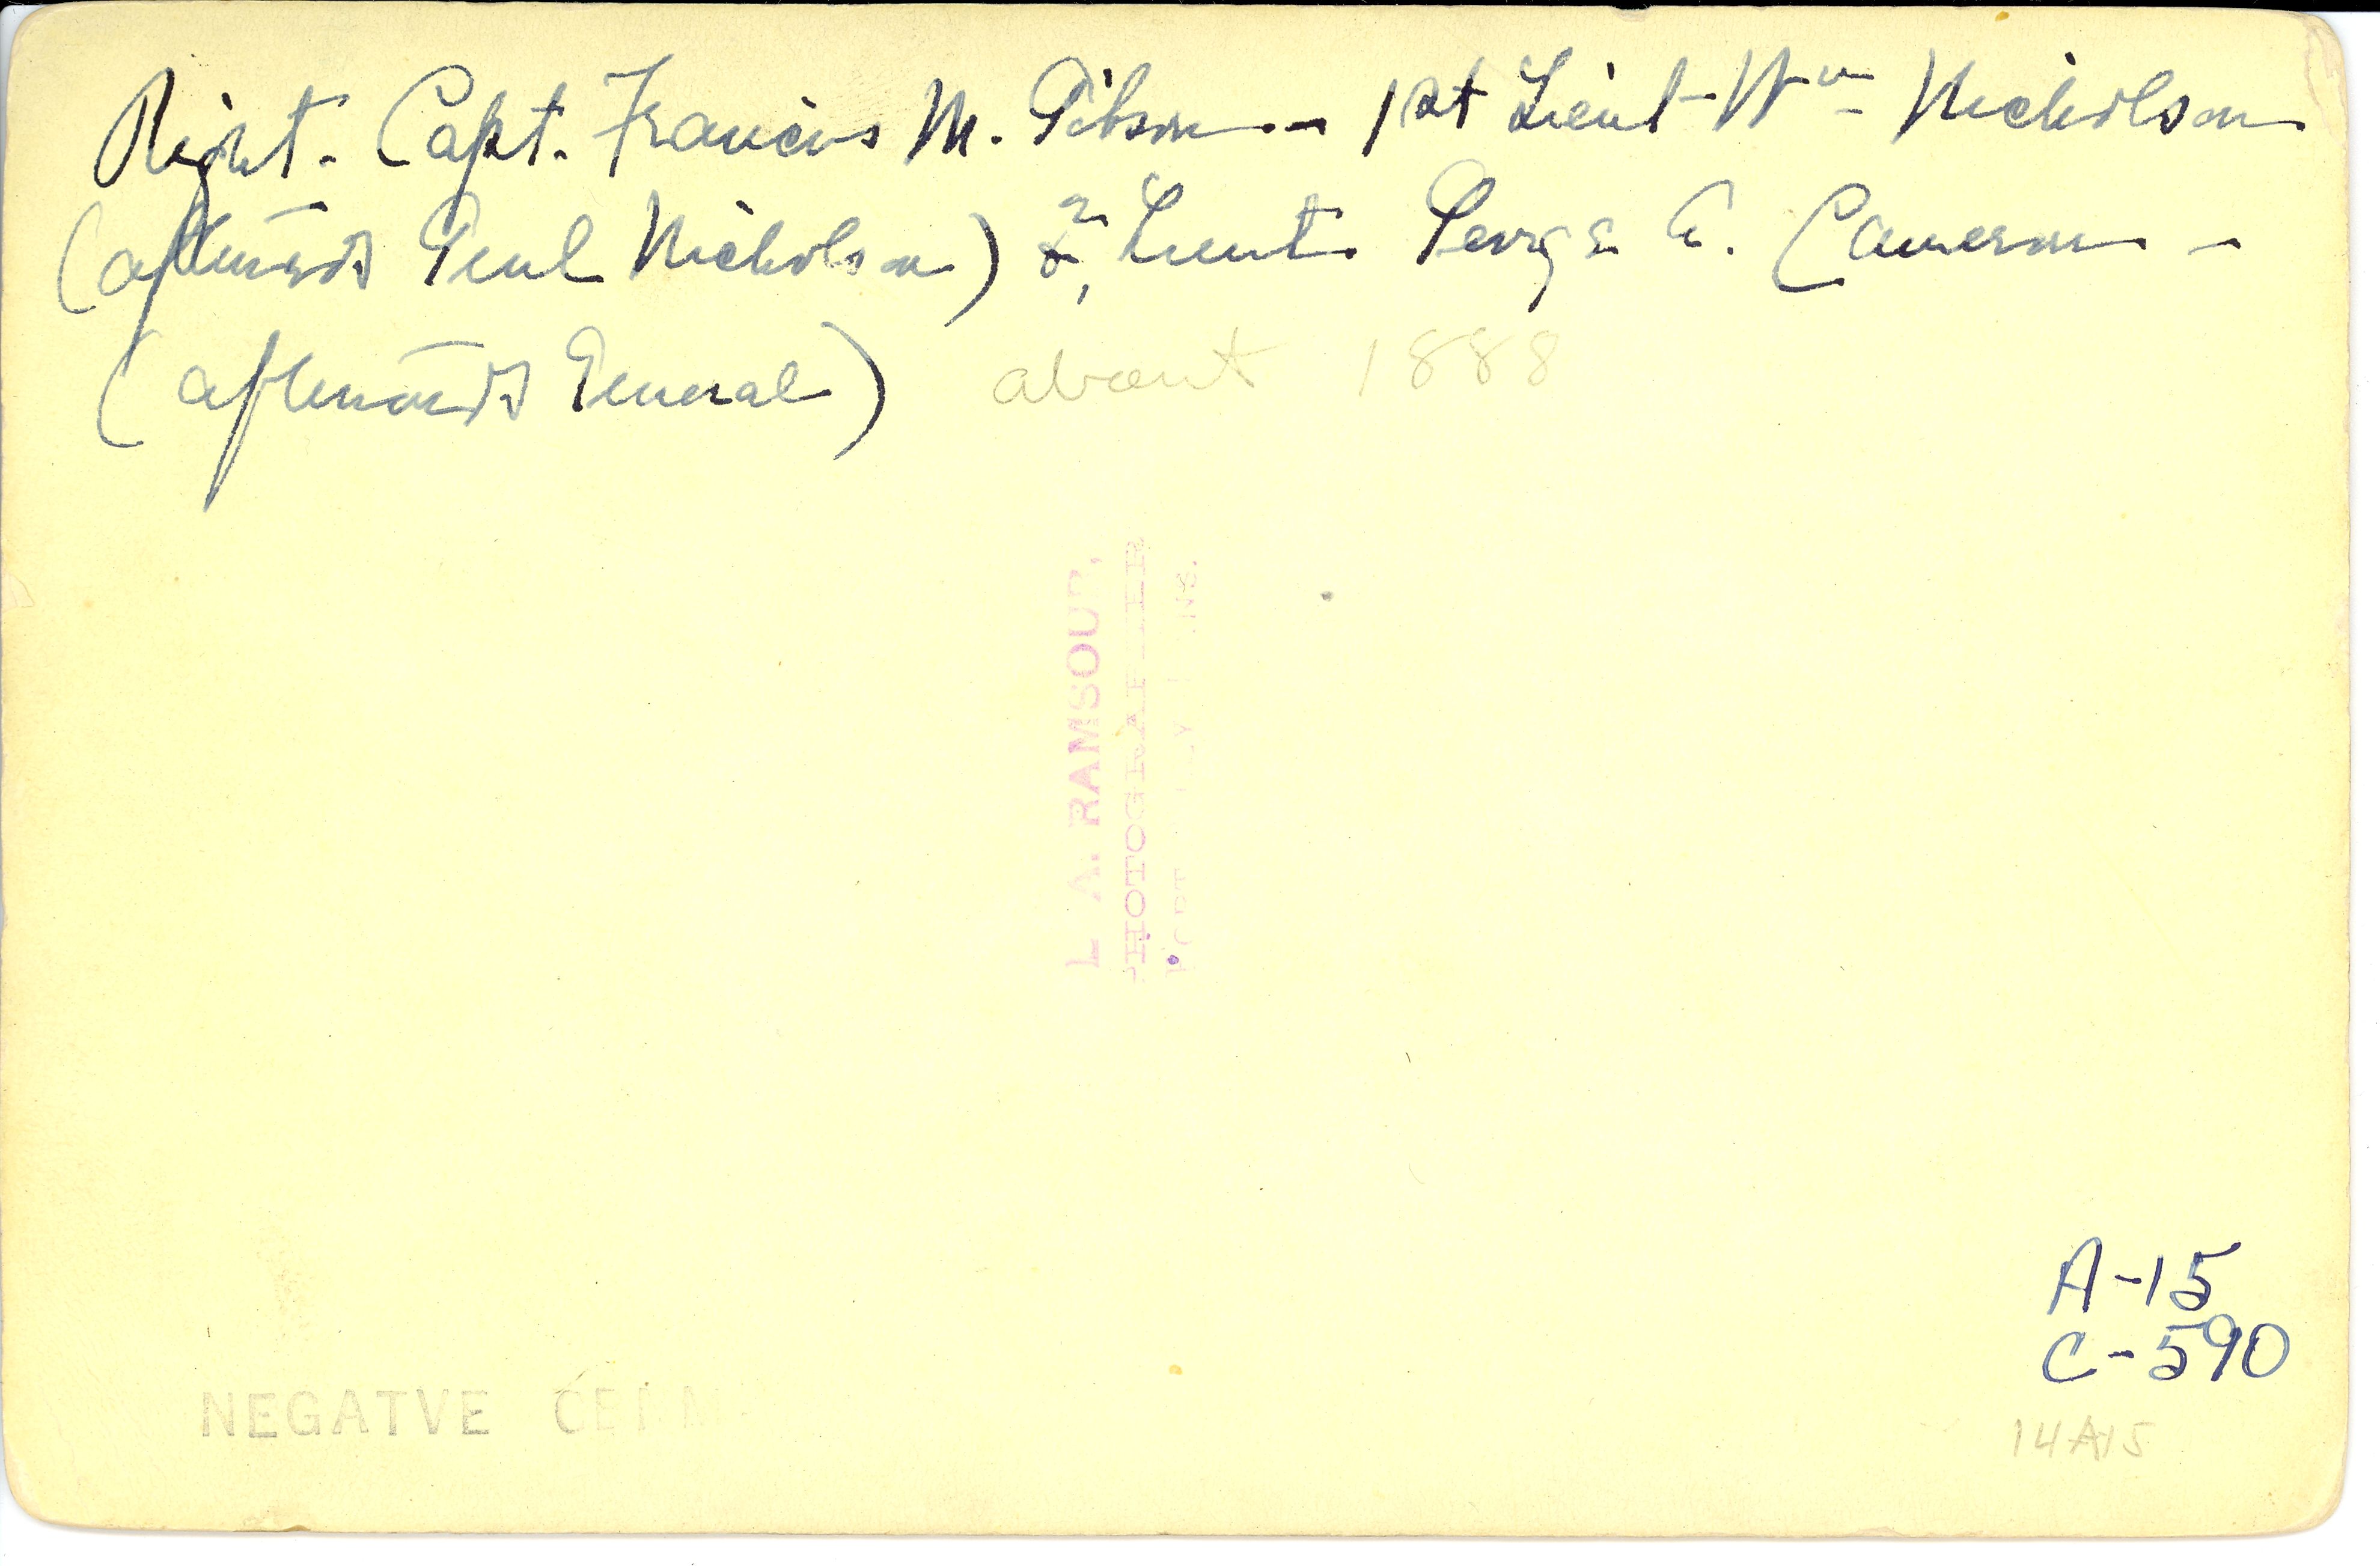 Right. Capt. Francis M. Gibson - 1st Lieut Wm Nicholson
(afterwards Genl Nicholson) & 2, Lieut. George A. Cameron -
(afterwards General) about 1888
RAMSOUR,
A-15
C-590
14A15
NEGATVE